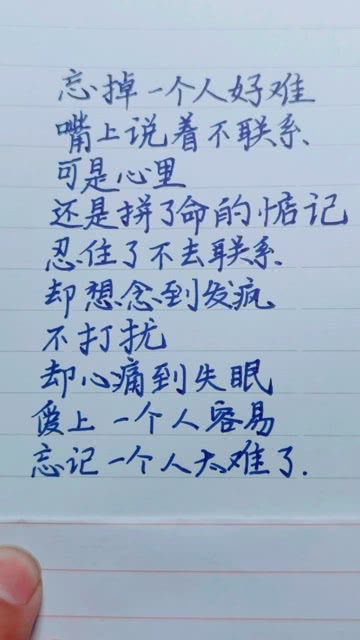 忘掉一个人好难
嘴上说着不联系
可是心里
还是拼了命的惦记
忍住了不去联系
却想念到发疯
不打扰
却心痛到失眠
爱上一个人容易
忘记一个人太难了.